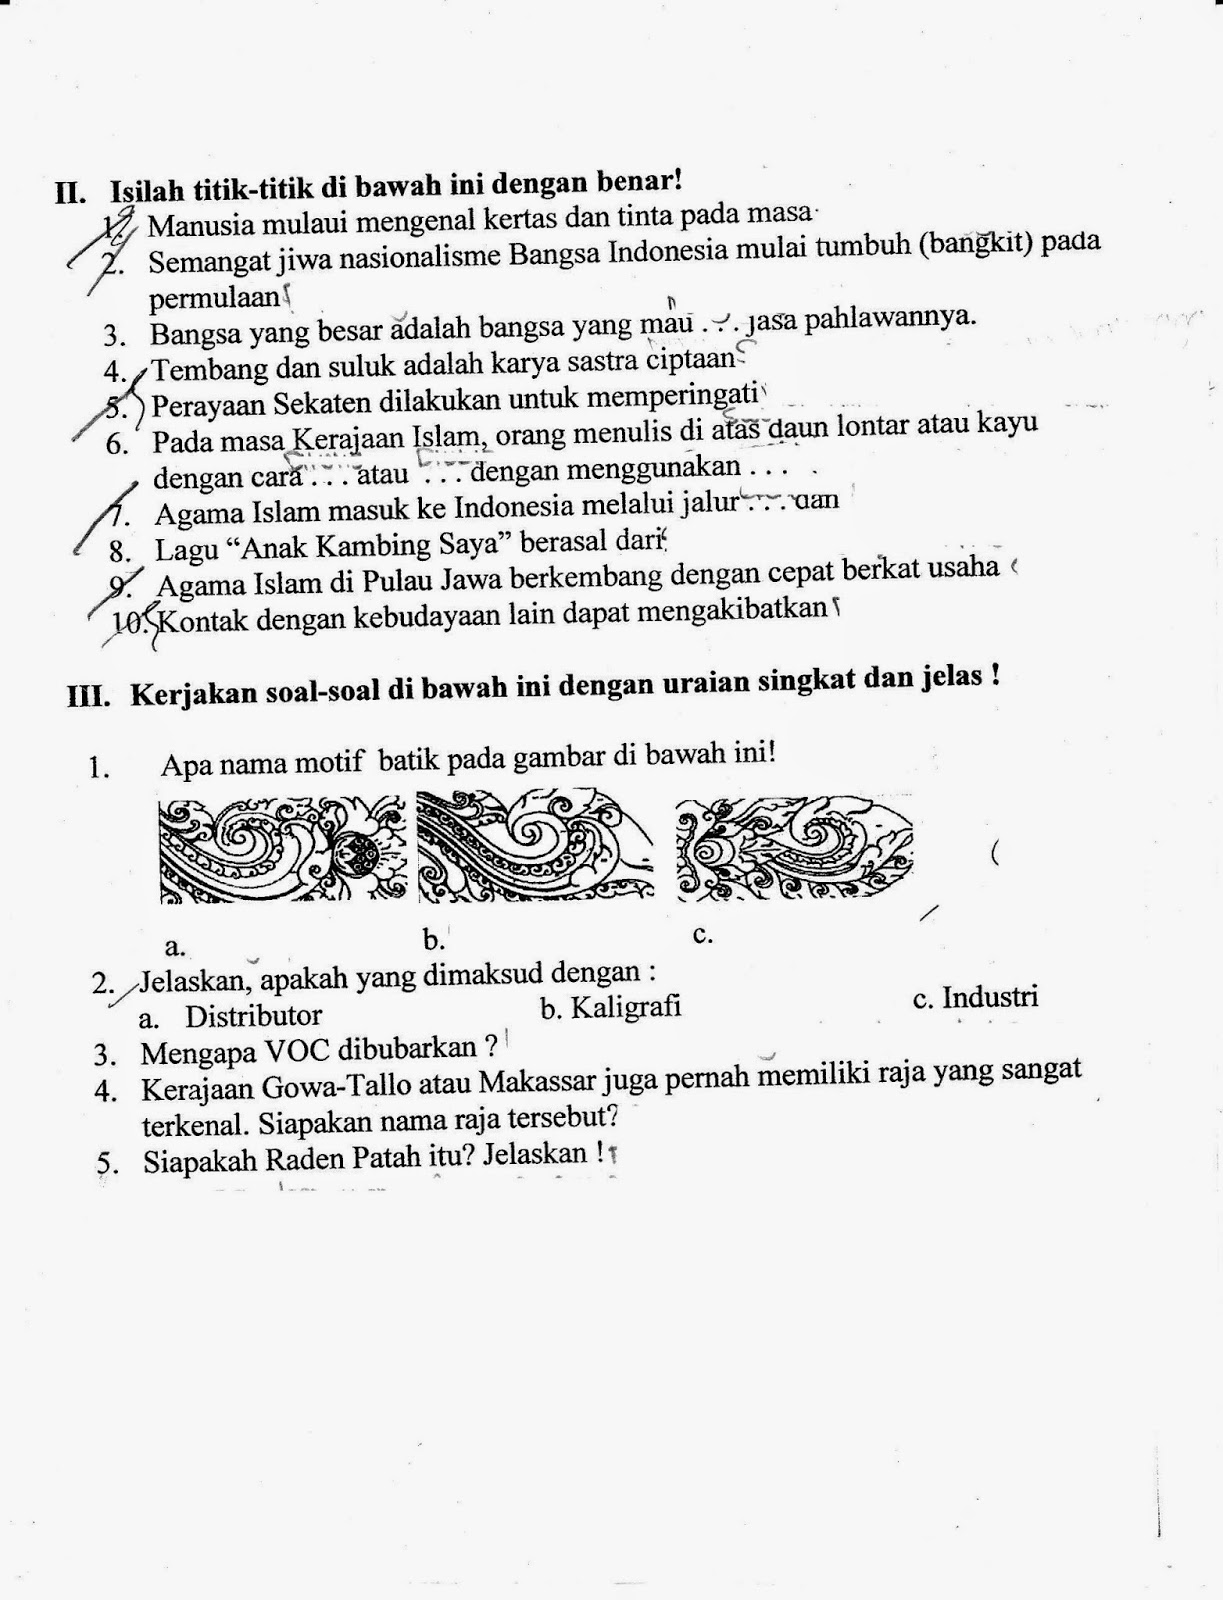 II. Isilah titik-titik di bawah ini dengan benar!
1. Manusia mulaui mengenal kertas dan tinta pada masa
2. Semangat jiwa nasionalisme Bangsa Indonesia mulai tumbuh (bangkit) pada
permulaan
3. Bangsa yang besar adalah bangsa yang mau . . . jasa pahlawannya.
4. Tembang dan suluk adalah karya sastra ciptaan
5. Perayaan Sekaten dilakukan untuk memperingati
6. Pada masa Kerajaan Islam, orang menulis di atas daun lontar atau kayu
dengan cara . . . atau . . . dengan menggunakan . . .
7. Agama Islam masuk ke Indonesia melalui jalur . . . dan
8. Lagu “Anak Kambing Saya” berasal dari
9. Agama Islam di Pulau Jawa berkembang dengan cepat berkat usaha
10. Kontak dengan kebudayaan lain dapat mengakibatkan
III. Kerjakan soal-soal di bawah ini dengan uraian singkat dan jelas !
1. Apa nama motif batik pada gambar di bawah ini!
a. b. c.
2. Jelaskan, apakah yang dimaksud dengan :
a. Distributor b. Kaligrafi c. Industri
3. Mengapa VOC dibubarkan ?
4. Kerajaan Gowa-Tallo atau Makassar juga pernah memiliki raja yang sangat
terkenal. Siapakan nama raja tersebut?
5. Siapakah Raden Patah itu? Jelaskan !